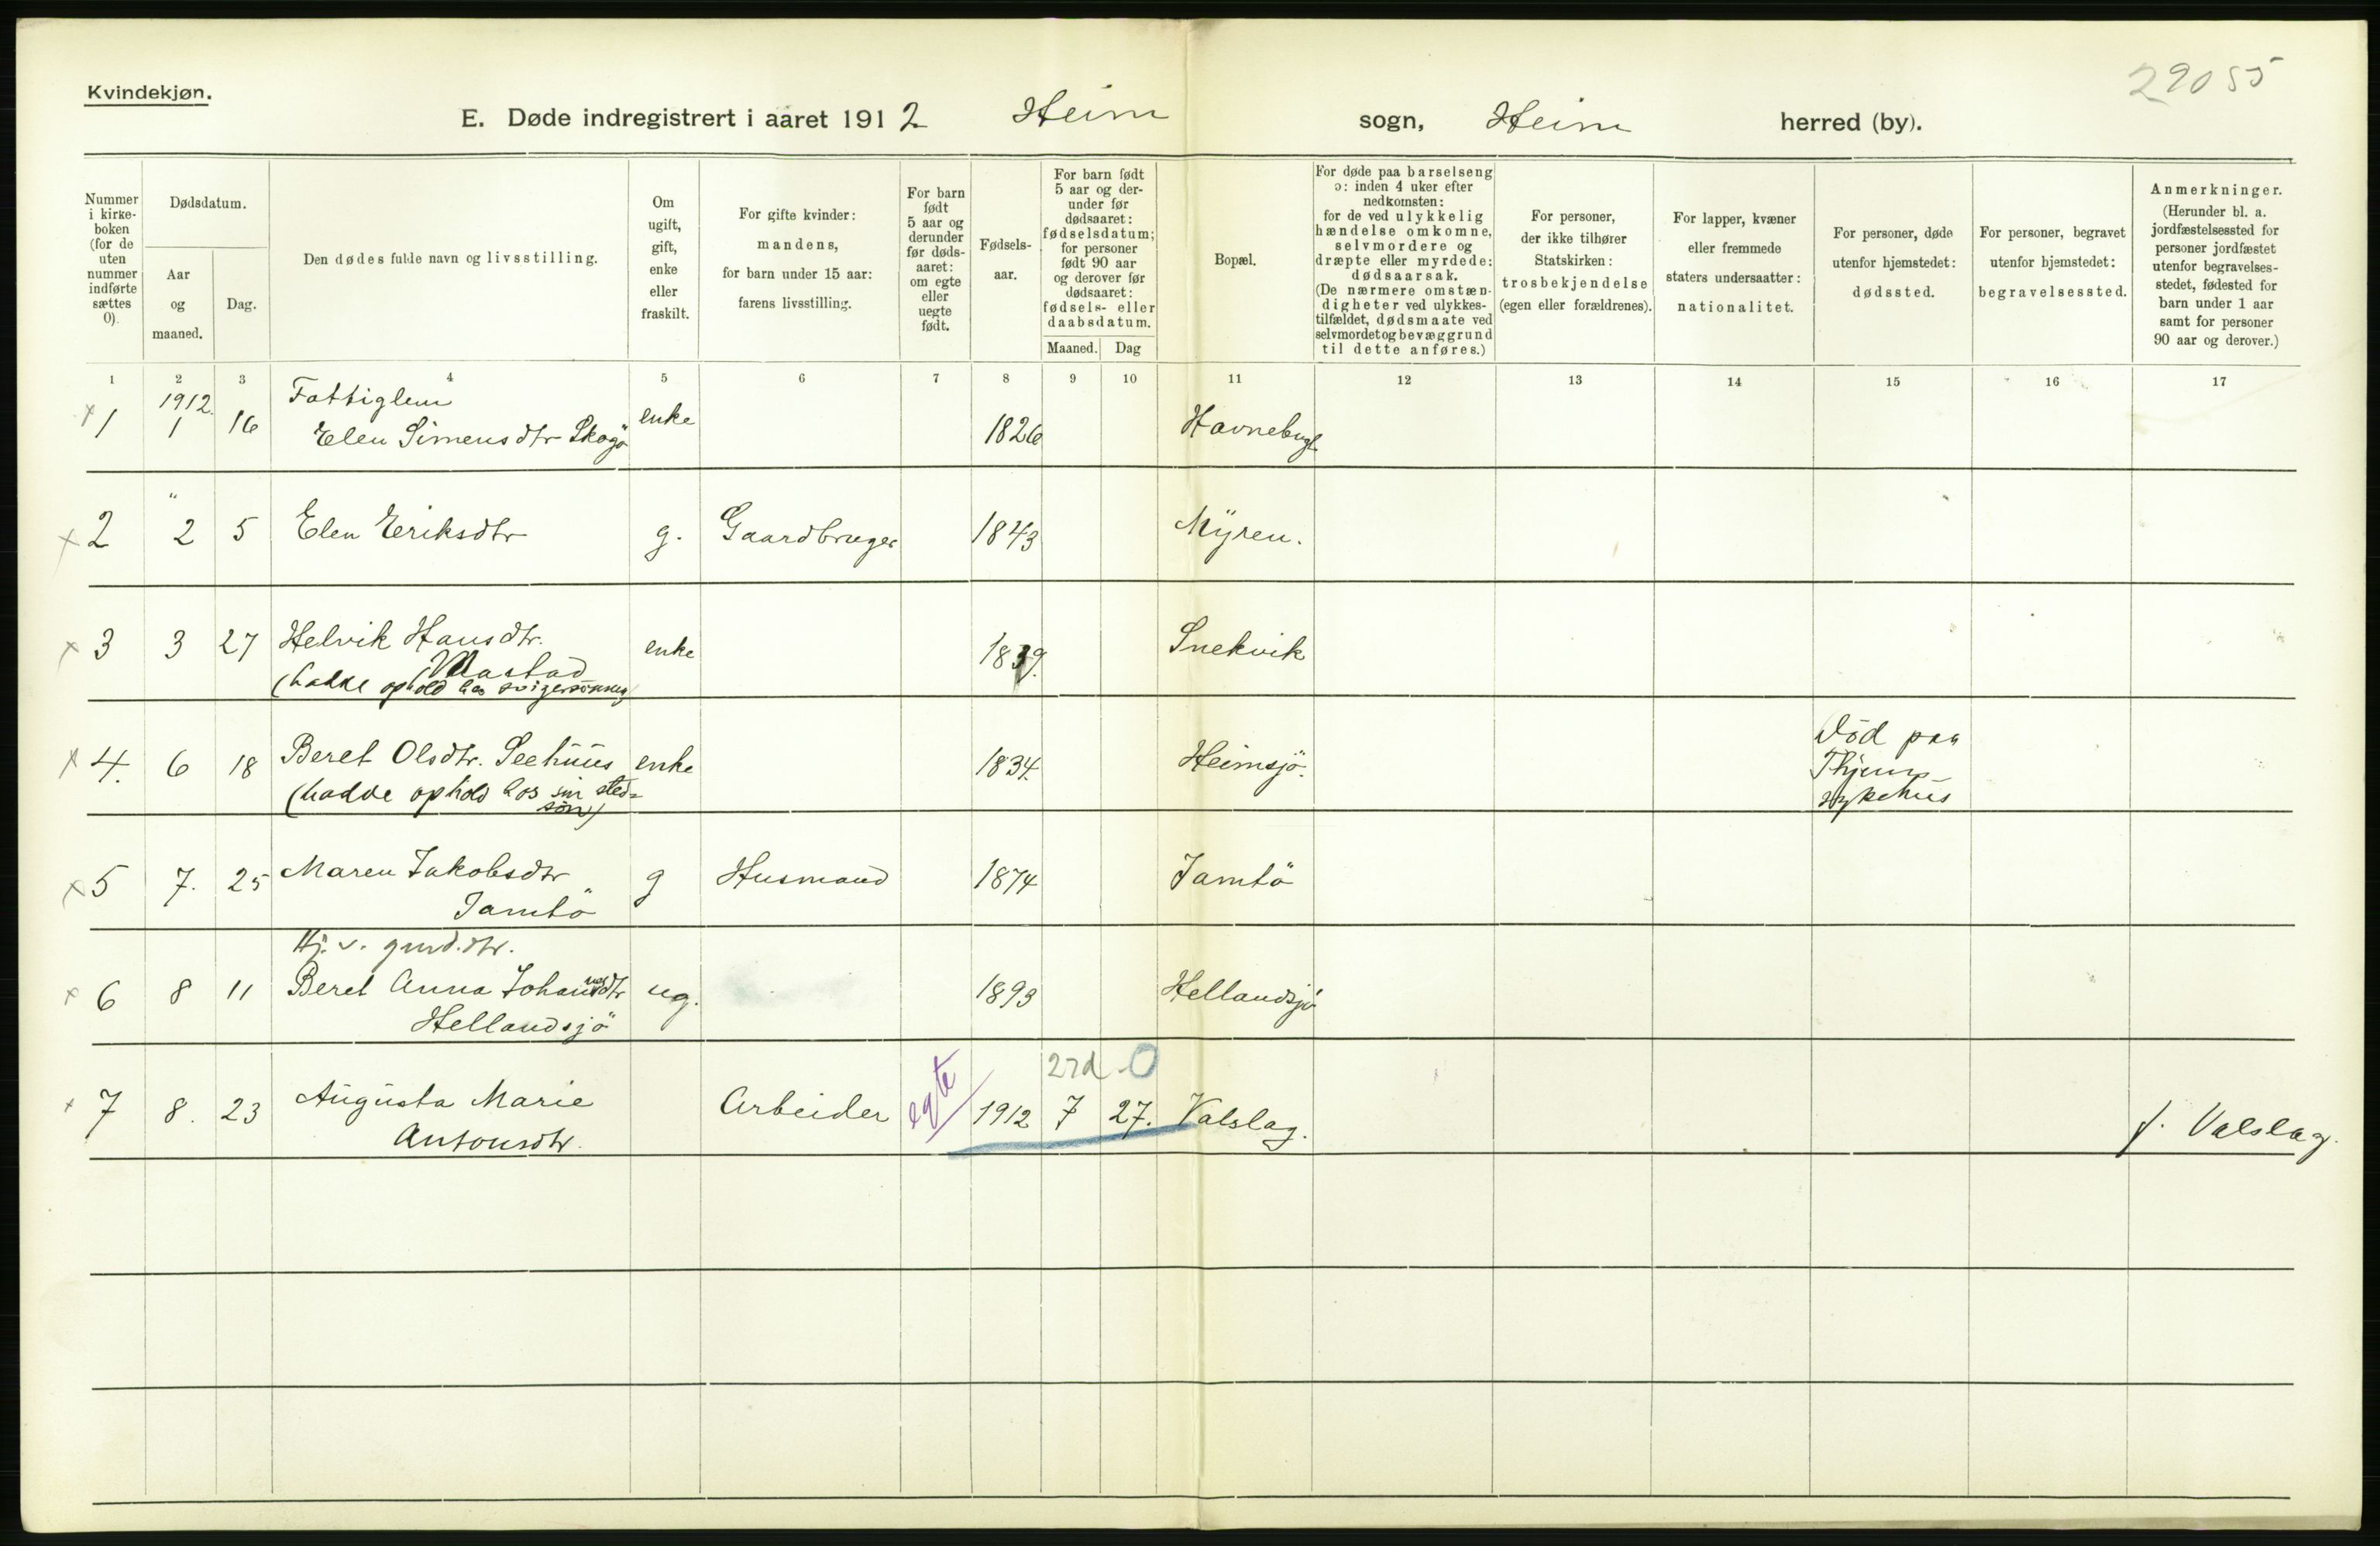 Kvindekjøn.
29055
E. Døde indregistrert i aaret 1912 Heim sogn, Heim herred (by).
Nummer i kirkeboken (for de uten nummer indførte sættes 0).
Dødsdatum.
Aar og maaned.
Dag.
Den dødes fulde navn og livsstilling.
Om ugift, gift, enke eller fraskilt.
For gifte kvinder: mandens, for barn under 15 aar: farens livsstilling.
For barn født 5 aar og derunder før dødsaaret: om egte eller uegte født.
Fødselsaar.
For barn født 5 aar og derunder før dødsaaret: fødselsdatum; for personer født 90 aar og derover før dødsaaret: fødsels- eller daabsdatum.
Maaned. Dag
Bopæl.
For døde paa barselseng ɔ: inden 4 uker efter nedkomsten: for de ved ulykkelig hændelse omkomne, selvmordere og dræpte eller myrdede: dødsaarsak. (De nærmere omstændigheter ved ulykkestilfældet, dødsmaate ved selvmordet og bevæggrund til dette anføres.)
For personer, der ikke tilhører Statskirken: trosbekjendelse (egen eller forældrenes).
For lapper, kvæner eller fremmede staters undersaatter: nationalitet.
For personer, døde utenfor hjemstedet: dødssted.
For personer, begravet utenfor hjemstedet: begravelsessted.
Anmerkninger. (Herunder bl. a. jordfæstelsessted for personer jordfæstet utenfor begravelsesstedet, fødested for barn under 1 aar samt for personer 90 aar og derover.)
1 2 3 4 5 6 7 8 9 10 11 12 13 14 15 16 17
1912. Fattiglem
1 1 16 Elen Simensdtr Skogö enke 1826 Havnebugt
"
2 2 5 Elen Eriksdtr g. Gaardbruger 1843 Myren.
3 3 27 Helvik Hansdtr. enke 1839. Snekvik
(hadde ophold hos svigersønnen)
4. 6 18 Beret Olsdtr. Seehuus enke 1834. Heimsjö. Död paa
(hadde ophold hos sin sted=
søn) Thjems
sykehus
5 7. 25 Maren Jakobsdtr g Husmand 1874 Jamtö
Jamtö
Hj. v. gmd. dtr.
6 8 11 Beret Anna Johannesdtr ug. 1893 Hellandsjö
Hellandsjö
27d. 0
7 8. 23 Augusta Marie Arbeider egte 1912 7 27. Valslag. f. Valslag.
Antonsdtr.